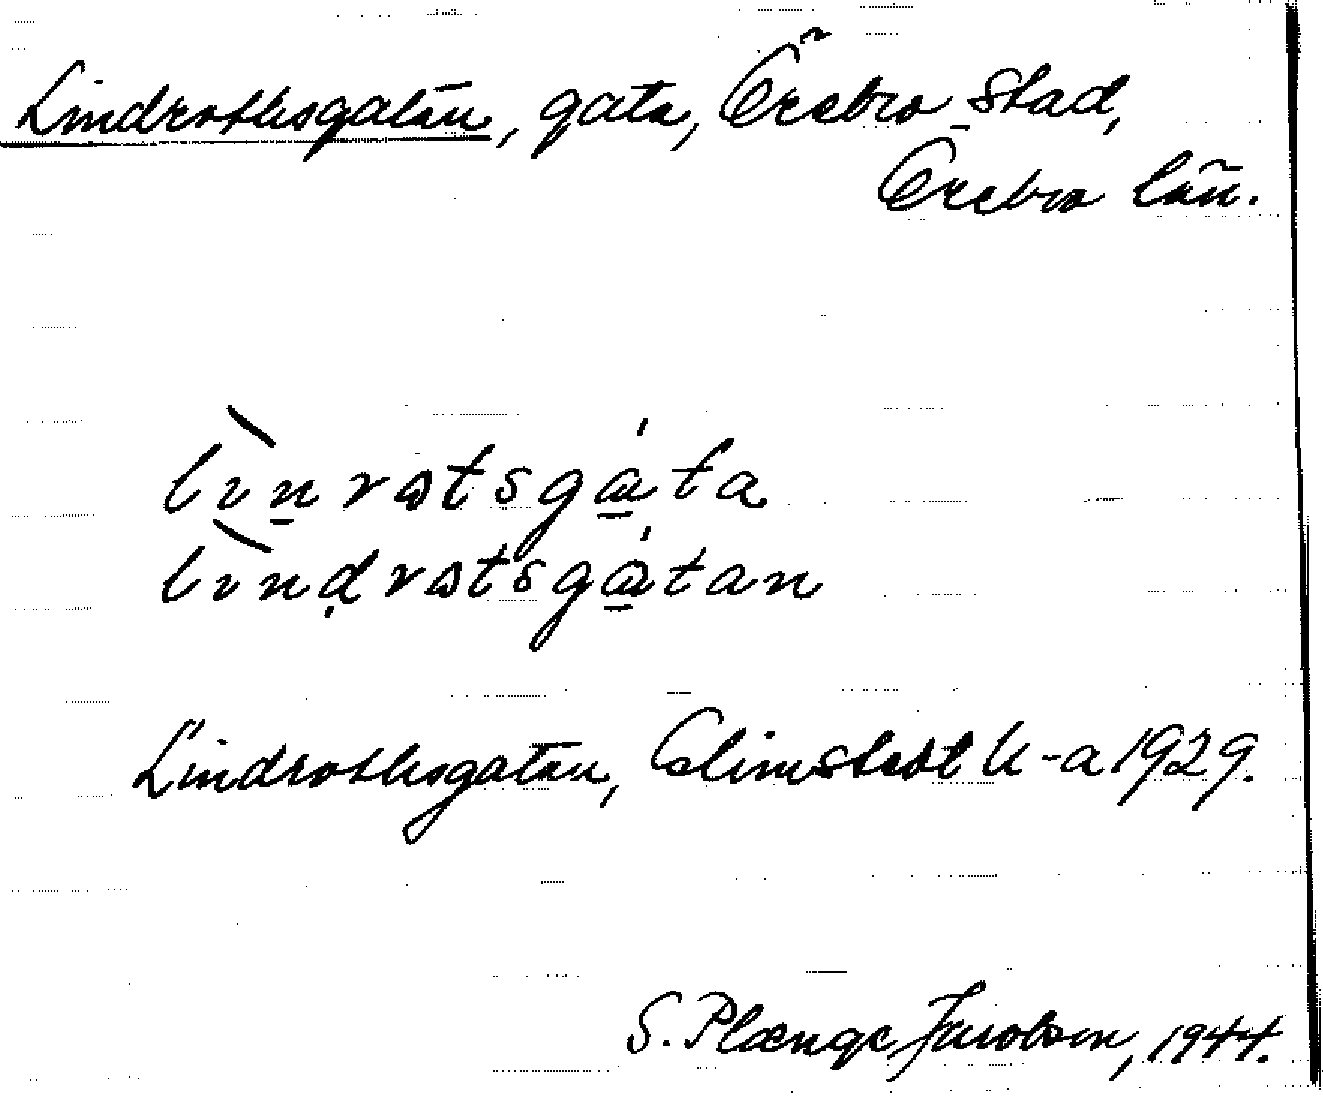 Lindrothsgatan, gata, Örebro stad,
Örebro län.
lìnrotsgáta
lìndrotsgátan
Lindrothsgatan, Elimstedt k-a 1929.
S. Plænge Jacobson, 1944.